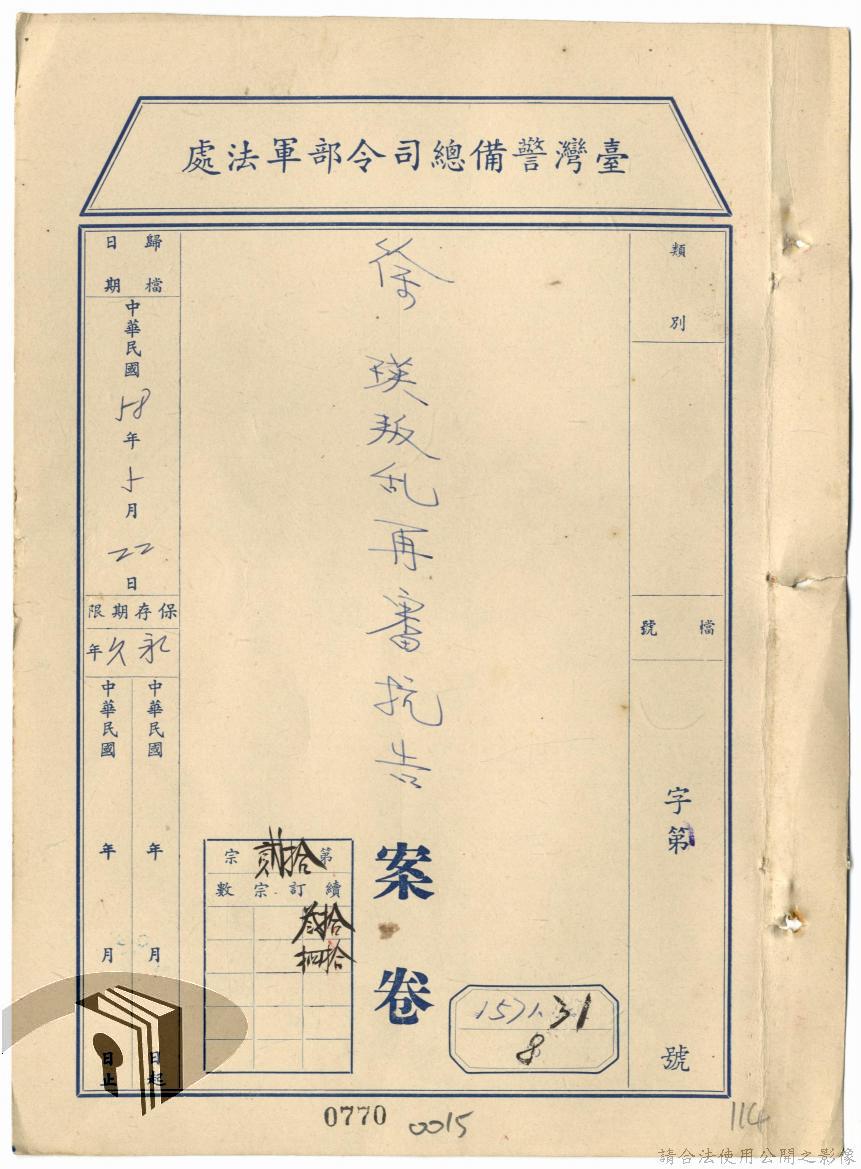 臺灣警備總司令部軍法處
類別
檔號
字第
號
徐
瑛叛乱再審抗告
案卷
第拾貳宗
續訂宗數
拾叁
拾肆
1571.31
8
歸檔日期
中華民國58年5月22日
保存期限
永久年
中華民國 年 月 日起
中華民國 年 月 日止
0770
0015
114
請合法使用公開之影像